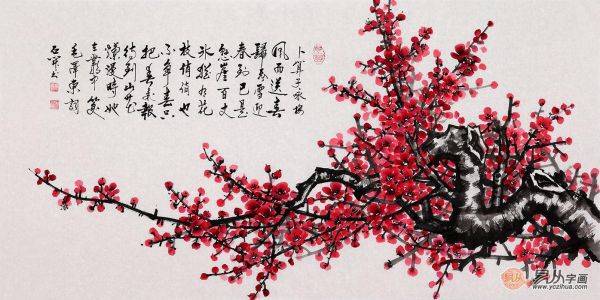 卜算子咏梅
風雨送春
歸飛雪迎
春到已是
懸崖百丈
冰猶有花
枝俏俏也
不争春只
把春来報
待到山花
爛漫時她
在叢中笑
毛澤東詞
易从字画
www.yczihua.com